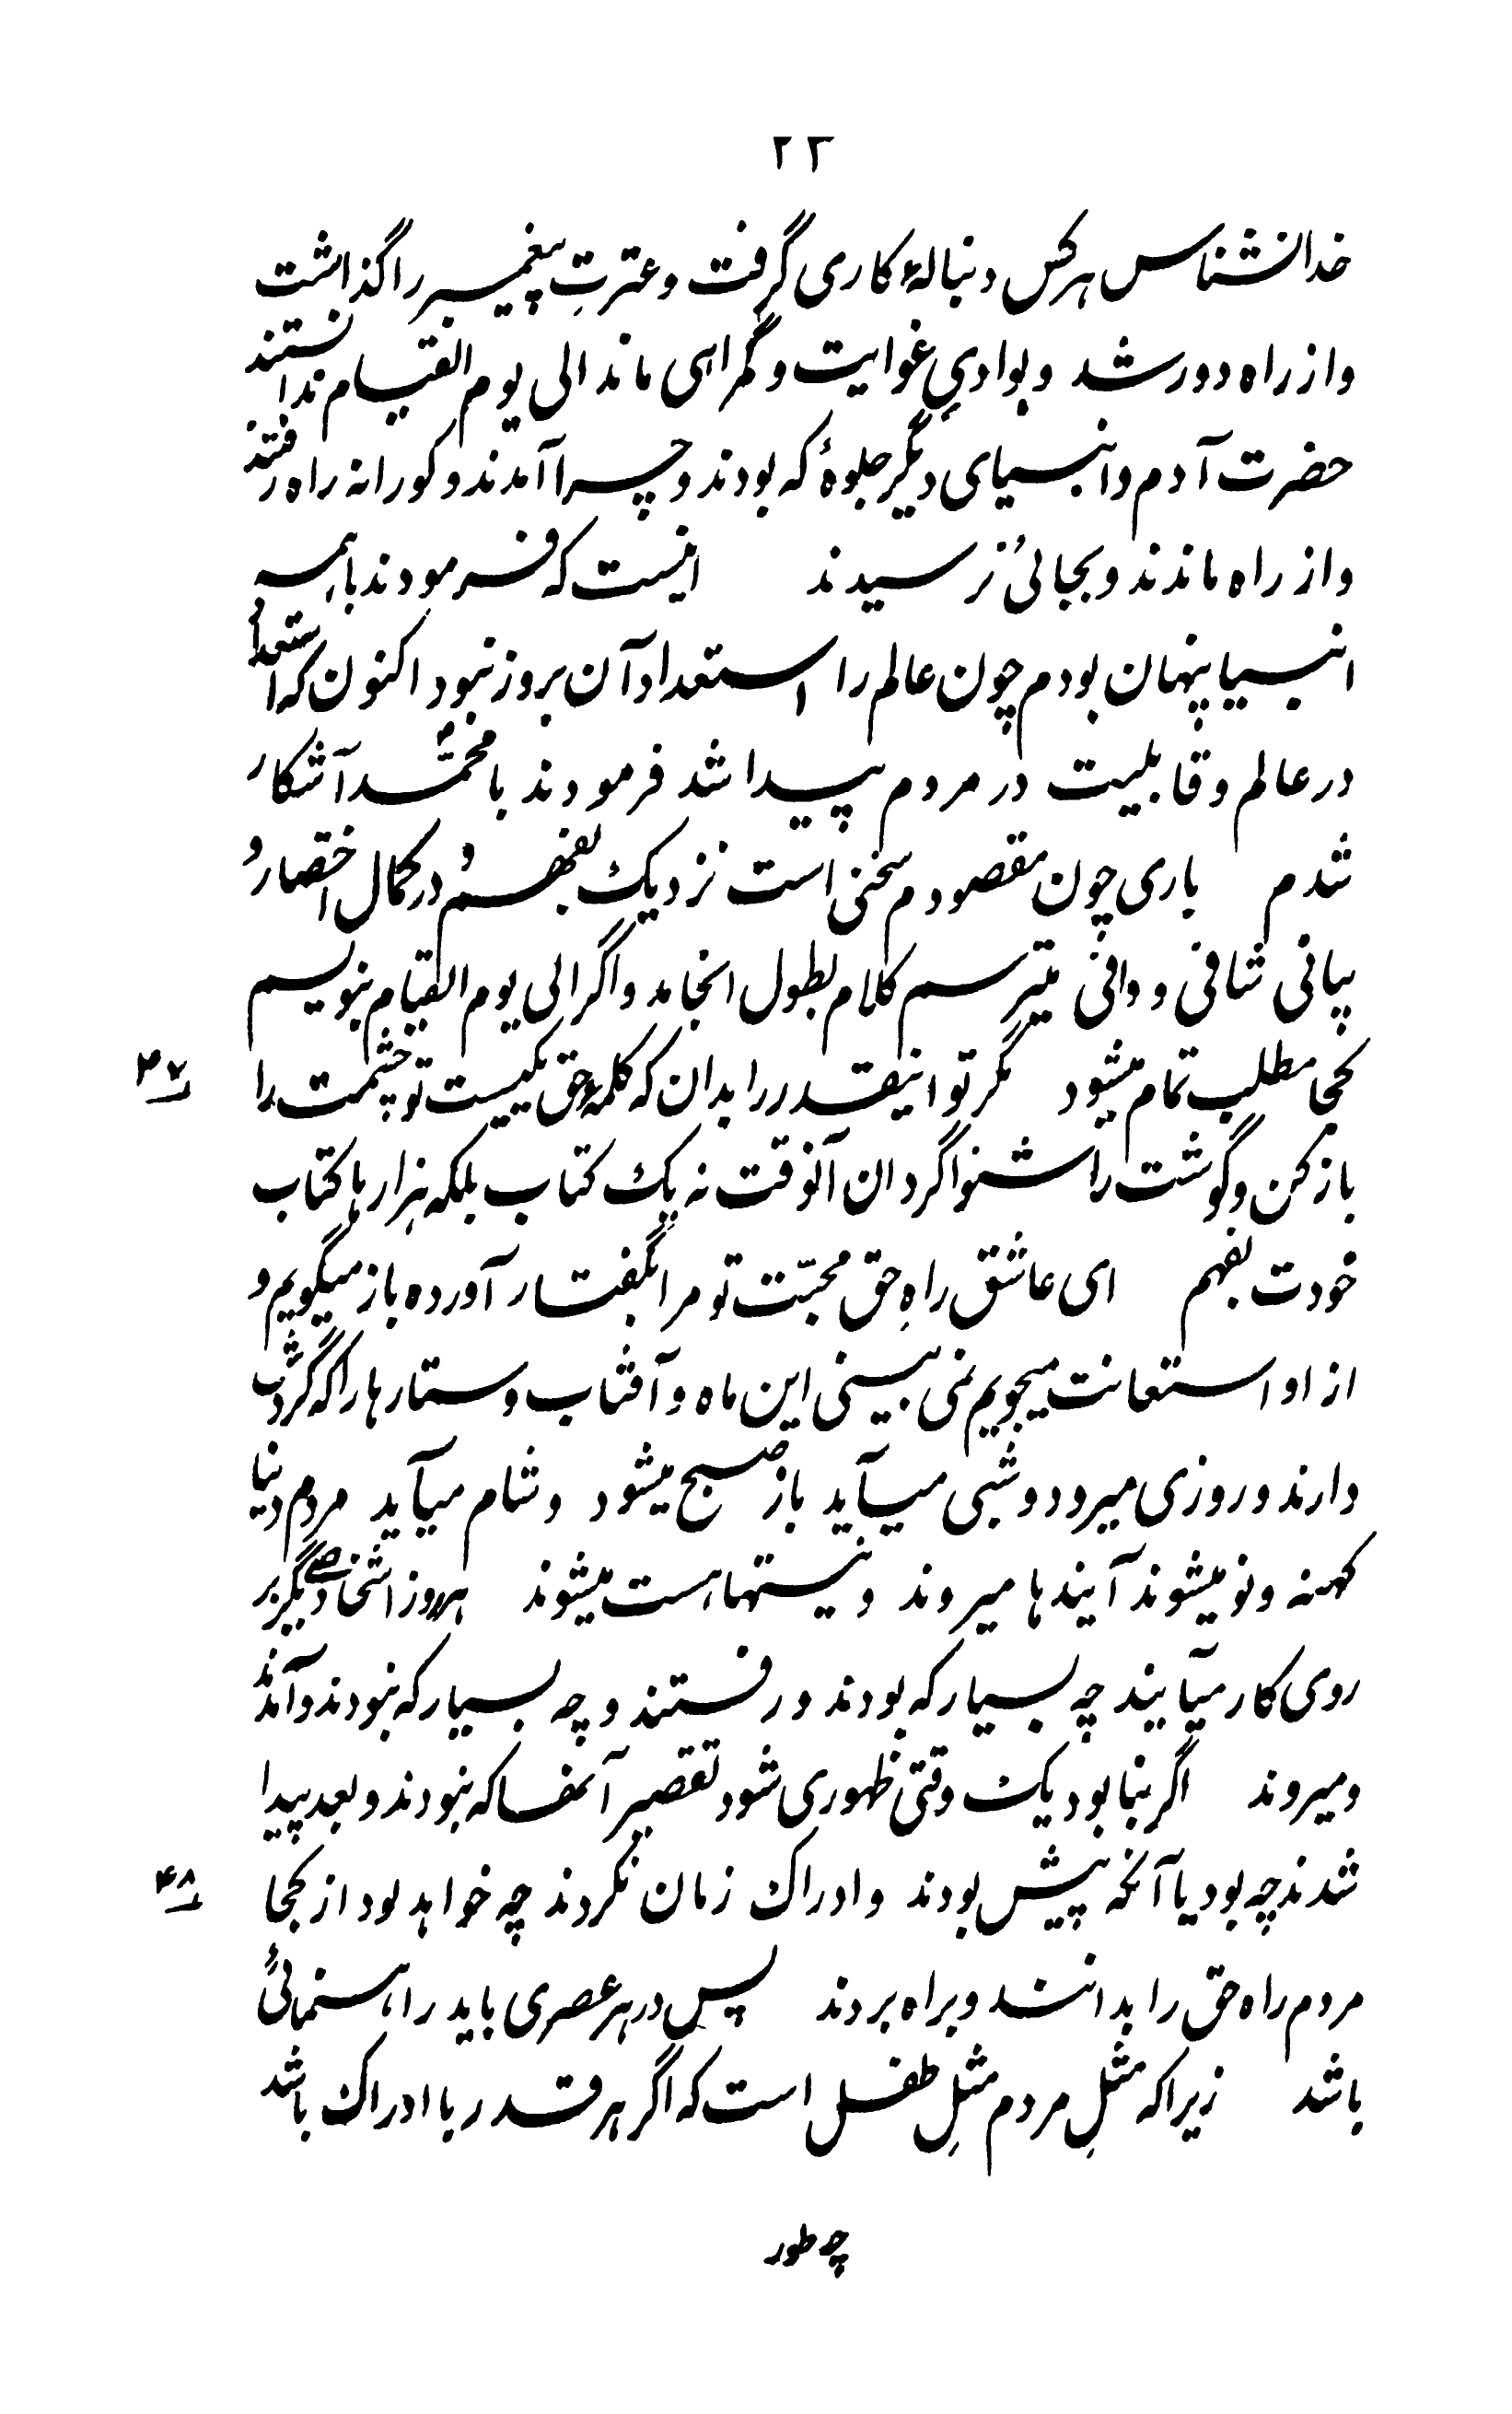 ۲۲
خدانشناس هر کس دنبالهٔ کاری گرفت و عترتِ پیغمبر را گذاشت
و از راه دور شد و بوادیِ غوایت و گمراهی ماند الی یوم القیام ندانستند
حضرت آدم و انبیای دیگر جلوهٔ که بودند و چرا آمدند و کورانه راه رفتند
و از راه ماندند و بجائی نرسیدند اینست که فرمودند با همه
انبیا پنهان بودم چون عالم را استعداد آن بروز نبود اکنون که استعداد
در عالم و قابلیت در مردم پیدا شد فرمودند با محمّد آشکار
شدم باری چون مقصودم سخنی است نزدیک بفهم و در کمال اختصار و
بیانی شافی و وافی میترسم کلام بطول انجامد و اگر الی یوم القیام بنویسم
کجا مطلب تمام میشود مگر تو اینقدر را بدان که کلمهٔ حق یکیست تو چشمت را
۴۷
باز کن و گوشت را شنوا گردان آنوقت نه یک کتاب بلکه هزارها کتاب
خودت بفهم ای عاشق راهِ حق محبّت تو مرا بگفتار آورده باز میگویم و
از او استعانت میجویم نمی بینی این ماه و آفتاب و ستارها را که گردش
دارند و روزی میرود و شبی میآید باز صبح میشود و شام میآید مردم دنیا
کهنه و نو میشوند آیندها میروند و نیستها هست میشوند هر روز اشخاص دیگر بر
روی کار میآیند چه بسیار که بودند و رفتند و چه بسیار که نبودند و آمدند
و میروند اگر بنا بود یک وقتی ظهوری شود تقصیر آنها که نبودند و بعد پیدا
شدند چه بود یا آنکه پیش بودند و ادراک زمان نکردند چه خواهد بود از کجا
۴۸
مردم راه حق را بدانند و براه بردند پس در هر عصری باید راهنمائی
باشد زیرا که مثلِ مردم مثلِ طفل است که اگر هر قدر با ادراک باشد
چه طور